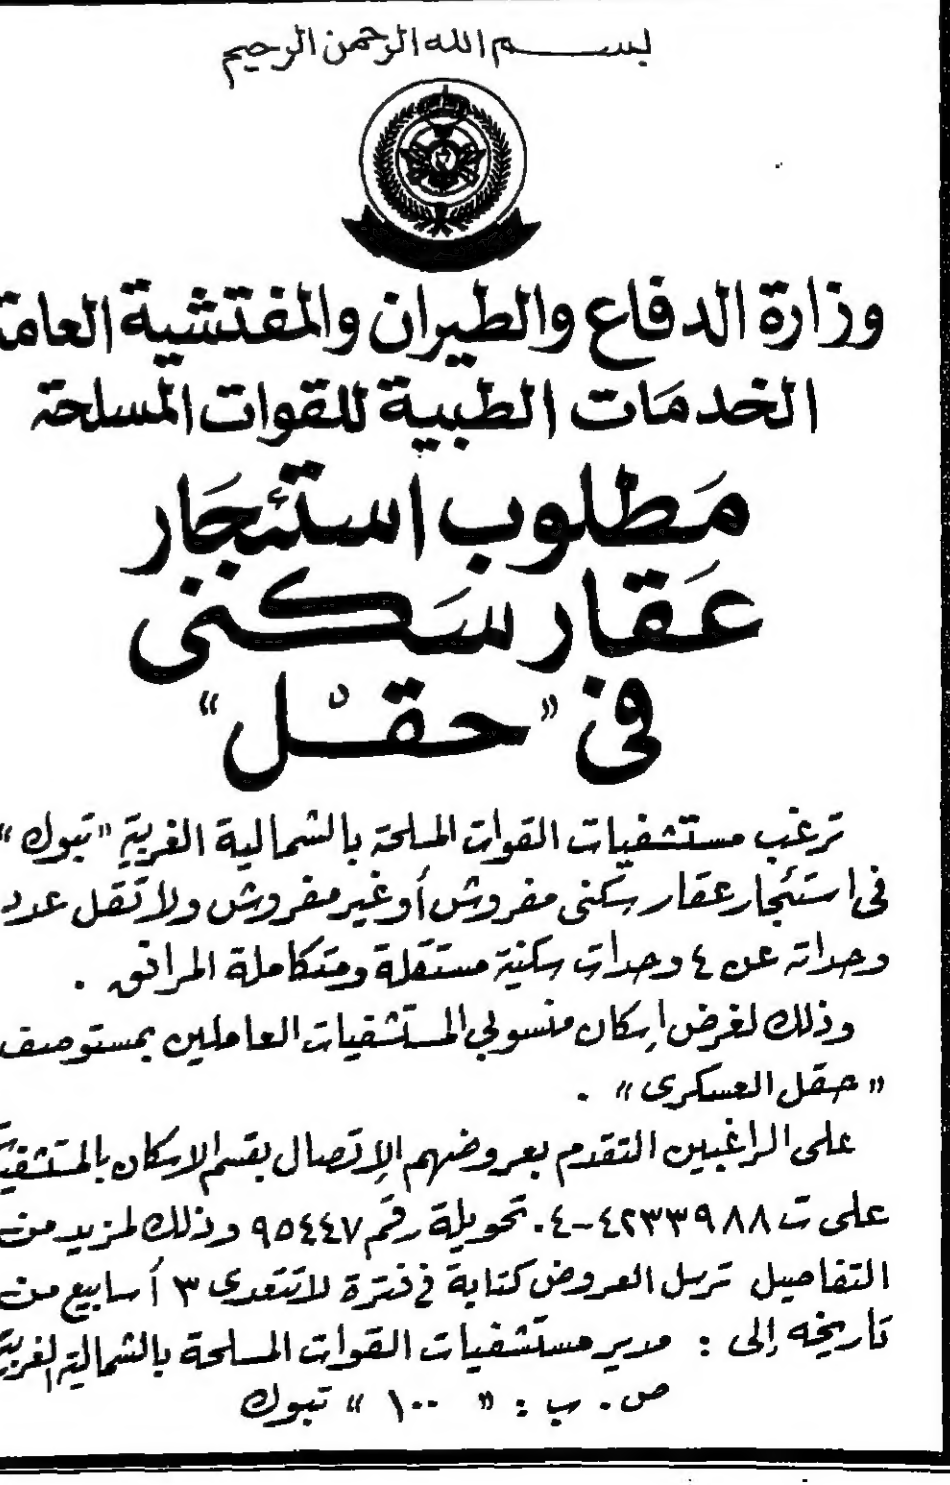 بسم الله الرحمن الرحيم
وزارة الدفاع والطيران والمفتشية العامة
الخدمات الطبية للقوات المسلحة
مَطلوب استئجَار
عَقار سَكنى
فى «حقل»
ترغب مستشفيات القوات المسلحة بالشمالية الغربية «تبوك»
فى استئجار عقار سكنى مفروش أو غير مفروش ولا تقل عدد
وحداته عن ٤ وحدات سكنية مستقلة ومتكاملة المرافق .
وذلك لغرض إسكان منسوبي المستشفيات العاملين بمستوصف
«حقل العسكرى» .
على الراغبين التقدم بعروضهم الإتصال بقسم الاسكان بالمستشفيات
على ت ٤٢٣٣٩٨٨-٠٤ تحويلة رقم ٩٥٤٤٧ وذلك لمزيد من
التفاصيل ترسل العروض كتابة في فترة لا تتعدى ٣ أسابيع من
تاريخه إلى : مدير مستشفيات القوات المسلحة بالشمالية الغربية
ص . ب : «١٠٠» تبوك